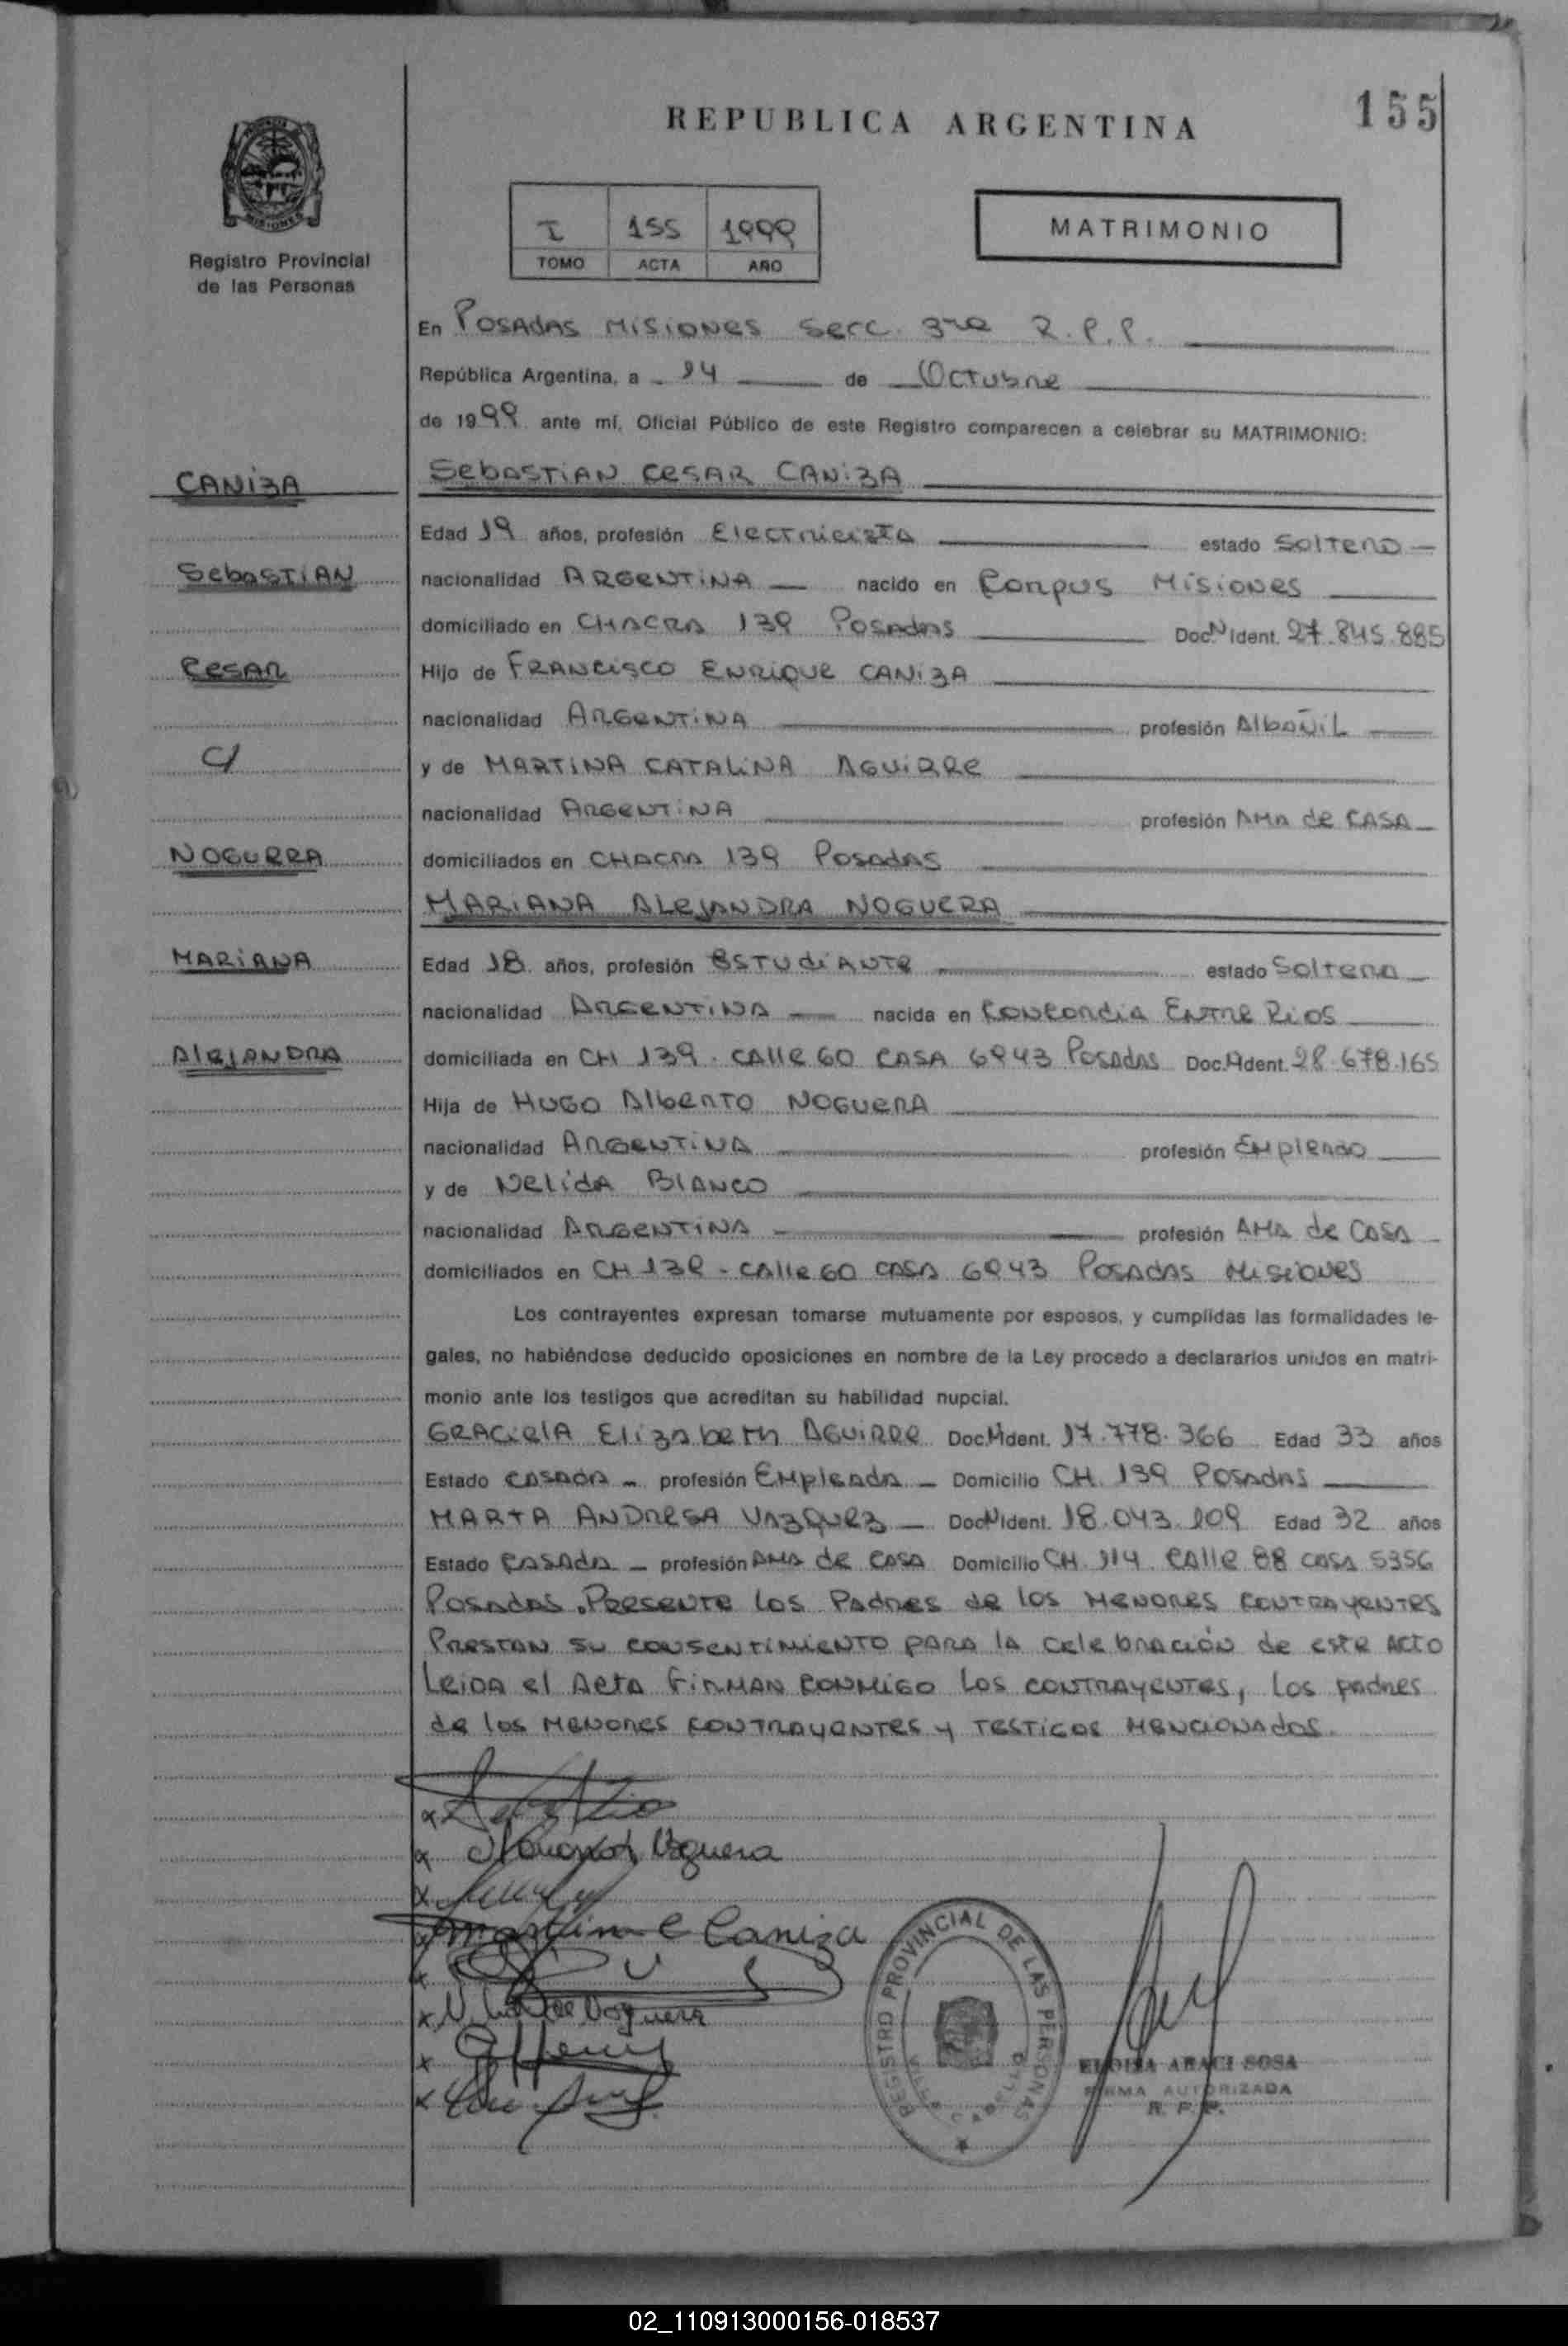 REPUBLICA ARGENTINA
155
Registro Provincial
de las Personas
I 155 1999
TOMO ACTA AÑO
MATRIMONIO
En POSADAS MISIONES Secc. 3ra R.P.P.
República Argentina, a 14 de OCTUBRE
de 1999 ante mí, Oficial Público de este Registro comparecen a celebrar su MATRIMONIO:
CANIZA
SEBASTIAN CESAR CANIZA
Edad 19 años, profesión ELECTRICISTA estado SOLTERO
SEBASTIAN
nacionalidad ARGENTINA nacido en CORPUS MISIONES
domiciliado en CHACRA 139 POSADAS Doc.N Ident. 27.845.885
CESAR
Hijo de FRANCISCO ENRIQUE CANIZA
nacionalidad ARGENTINA profesión ALBAÑIL
C/
y de MARTINA CATALINA AGUIRRE
nacionalidad ARGENTINA profesión AMA de CASA
NOGUERA
domiciliados en CHACRA 139 POSADAS
MARIANA ALEJANDRA NOGUERA
MARIANA
Edad 18 años, profesión ESTUDIANTE estado SOLTERA
nacionalidad ARGENTINA nacida en CONCORDIA ENTRE RIOS
ALEJANDRA
domiciliada en CH 139 - CALLE 60 CASA 6943 POSADAS Doc.N Ident. 28.678.165
Hija de HUGO ALBERTO NOGUERA
nacionalidad ARGENTINA profesión EMPLEADO
y de NELIDA BLANCO
nacionalidad ARGENTINA profesión AMA de CASA
domiciliados en CH 139 - CALLE 60 CASA 6943 POSADAS MISIONES
Los contrayentes expresan tomarse mutuamente por esposos, y cumplidas las formalidades le-
gales, no habiéndose deducido oposiciones en nombre de la Ley procedo a declararlos unidos en matri-
monio ante los testigos que acreditan su habilidad nupcial.
GRACIELA ELIZABETH AGUIRRE Doc.N Ident. 17.778.366 Edad 33 años
Estado CASADA profesión EMPLEADA Domicilio CH. 139 POSADAS
MARTA ANDRESA VAZQUEZ Doc N Ident. 18.043.109 Edad 32 años
Estado CASADA profesión AMA de CASA Domicilio CH. 114 CALLE 88 CASA 5356
POSADAS. PRESENTE LOS PADRES de los MENORES CONTRAYENTES
PRESTAN SU CONSENTIMIENTO PARA LA CELEBRACIÓN de este ACTO
LEIDA el ACTA FIRMAN CONMIGO LOS CONTRAYENTES, LOS PADRES
de los MENORES CONTRAYENTES y TESTIGOS MENCIONADOS.
Noguera
Martina C Caniza
de Noguera
REGISTRO PROVINCIAL DE LAS PERSONAS
ELOISA ARACI SOSA
FIRMA AUTORIZADA
R. P. P.
02_110913000156-018537